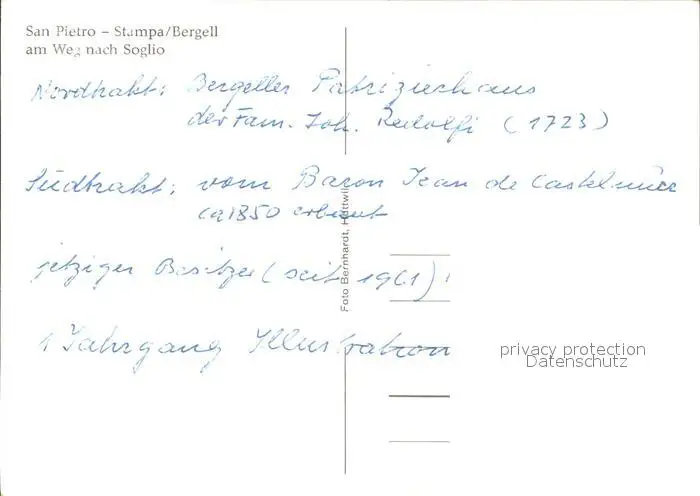 San Pietro – Stampa/Bergell
am Weg nach Soglio
Nordtrakt: Bergeller Patrizierhaus
der Fam. Joh. Redolfi (1723)
Südtrakt: vom Baron Jean de Castelmur
ca 1850 erbaut
jetziger Besitzer (seit 1961)
1 Jahrgang Illustration
Foto Bernhardt, Huttwil
privacy protection
Datenschutz